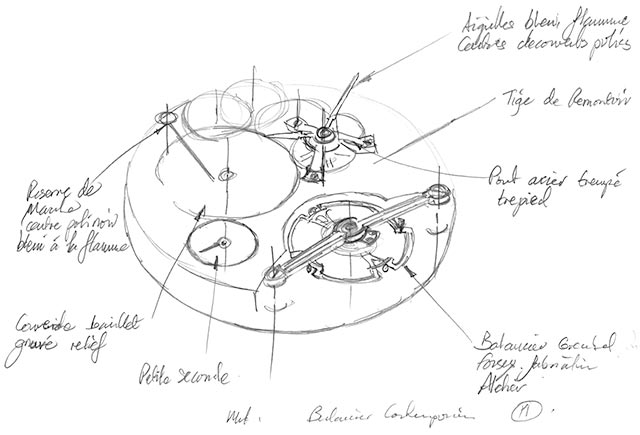 Aiguilles bleui flamme
Centres decouverts polies
Tige de Remontoir
Pont acier trempé
trepied
Reserve de
Marche
centre poli noir
bleui à la flamme
Couvercle barillet
gravé relief
Petite seconde
Balancier Greubel
Forsey
Mvt. Balancier Contemporain M